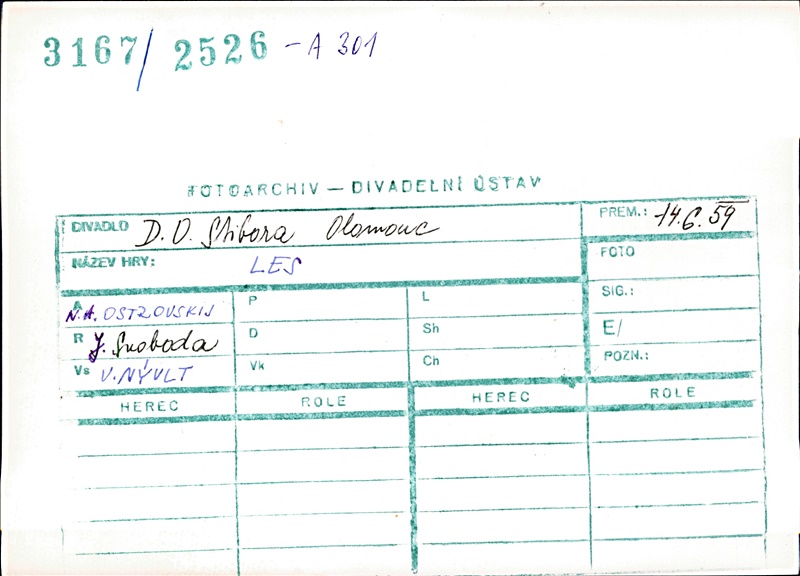 3167/ 2526 -A 301
FOTOARCHIV — DIVADELNÍ ÚSTAV
DIVADLO D. O. Stibora Olomouc
PREM.: 14.6.59
NÁZEV HRY: LES
FOTO
A N.A. OSTROVSKIJ
P
L
SIG.:
R J. Svoboda
D
Sh
E/
Vs V. NÝVLT
Vk
Ch
POZN.:
HEREC ROLE HEREC ROLE